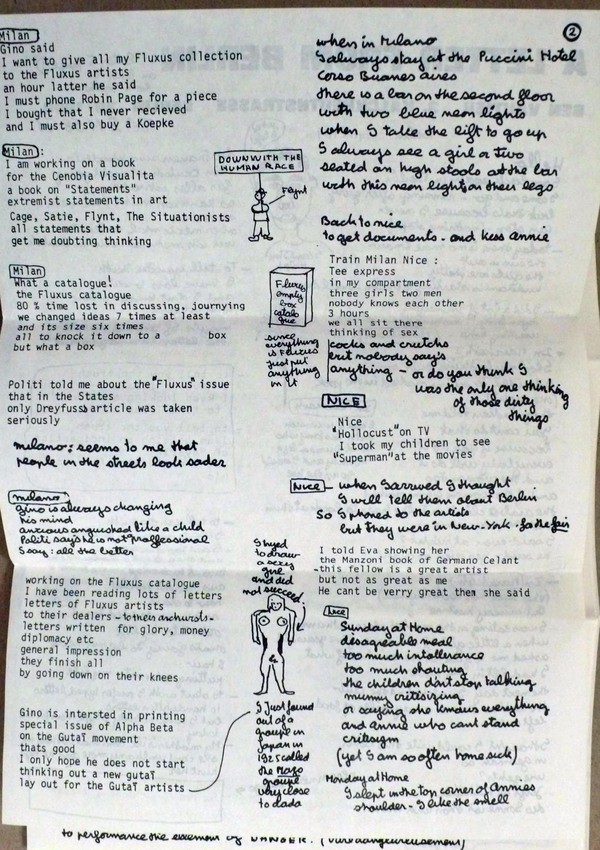 2
Milan
Gino said
I want to give all my Fluxus collection
to the Fluxus artists
an hour latter he said
I must phone Robin Page for a piece
I bought that I never recieved
and I must also buy a Koepke
Milan):
I am working on a book
for the Cenobia Visualita
a book on "Statements"
extremist statements in art
Cage, Satie, Flynt, The Situationists
all statements that
get me doubting thinking
DOWN WITH THE
HUMAN RACE
Flynt
Milan
What a catalogue!
the Fluxus catalogue
80 % time lost in discussing, journying
we changed ideas 7 times at least
and its size six times
all to knock it down to a box
but what a box
Fluxus
empty
box
catalo
gue
since
everything
is Fluxus
just put
anything
in it
Politi told me about the "Fluxus" issue
that in the States
only Dreyfuss article was taken
seriously
milano: seems to me that
people in the streets look sader
milano
Gino is always changing
his mind
anxious anguished like a child
Politi says he is not proffessional
I say: all the better
working on the Fluxus catalogue
I have been reading lots of letters
letters of Fluxus artists
to their dealers - to their archivists -
letters written for glory, money
diplomacy etc
general impression
they finish all
by going down on their knees
I tryed
to draw
a sexy
girl
and did
not succeed
Gino is intersted in printing
special issue of Alpha Beta
on the Gutaï movement
thats good
I only hope he does not start
thinking out a new gutaï
lay out for the Gutaï artists
I just found
out of a
groupe in
Japan in
1925 called
the Mavo
groupe
very close
to dada
when in Milano
I always stay at the Puccini Hotel
Corso Buenes aires
there is a bar on the second floor
with two blue neon lights
when I take the lift to go up
I always see a girl or two
seated on high stools at the bar
with this neon light on their legs
Back to nice
to get documents - and kess annie
Train Milan Nice :
Tee express
in my compartment
three girls two men
nobody knows each other
3 hours
we all sit there
thinking of sex
cocks and crutchs
but nobody says
anything - or do you think I
was the only one thinking
of those dirty
things
NICE
Nice
"Hollocust" on TV
I took my children to see
"Superman" at the movies
Nice - when I arrived I thought
I will tell them about Berlin
So I phoned to the artists
but they were in New-York - for the fair
I told Eva showing her
the Manzoni book of Germano Celant
-this fellow is a great artist
but not as great as me
He cant be verry great then she said
Nice
Sunday at Home
disagreable meal
too much intollerance
too much shouting
the children don't stop talking
mummy critisizing
or saying she knows everything
and Annie who cant stand
critisysm
(yet I am so often home sick)
Monday at Home
I slept in the top corner of Annies
shoulder - I like the smell
to performance the